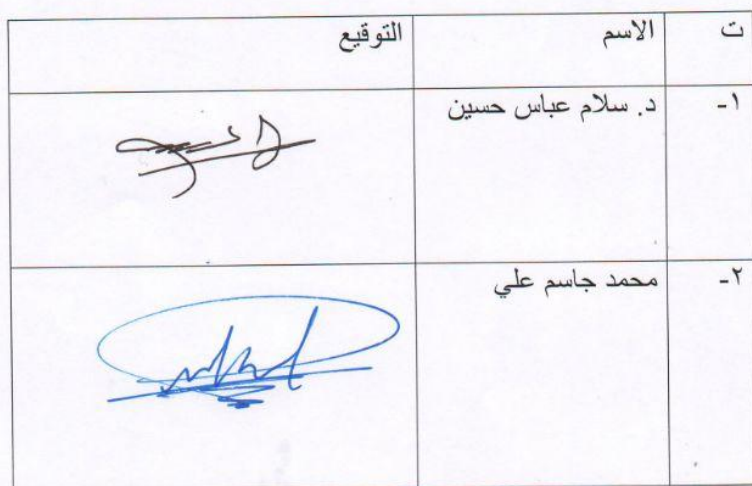 ت الاسم التوقيع
١- د. سلام عباس حسين
٢- محمد جاسم علي